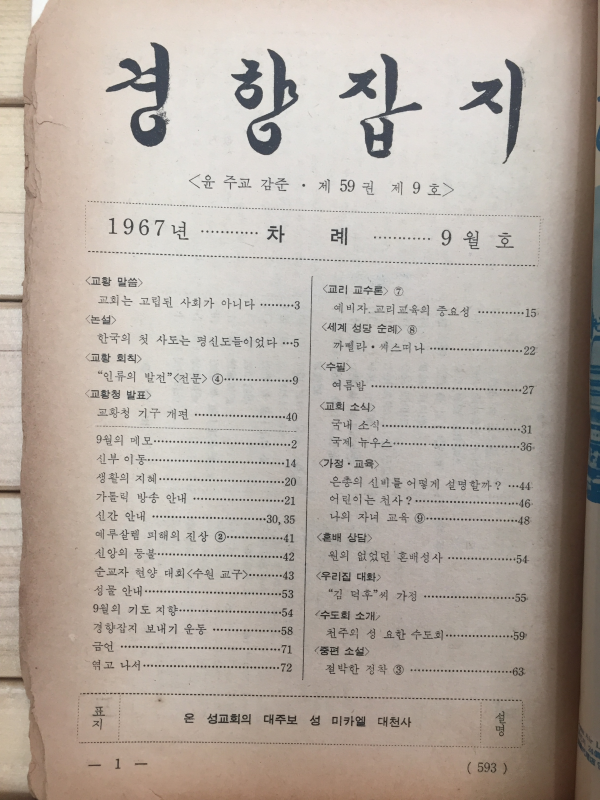 경향잡지
<윤 주교 감준 · 제 59 권 제 9 호>
1967년 ………… 차 례 ………… 9 월 호
<교황 말씀>
교회는 고립된 사회가 아니다 ………3
<논설>
한국의 첫 사도는 평신도들이었다 …5
<교황 회칙>
"인류의 발전"<전문> ④………………9
<교황청 발표>
교황청 기구 개편 ………………………40
9월의 메모………………………………2
신부 이동…………………………………14
생활의 지혜………………………………20
가톨릭 방송 안내 ………………………21
신간 안내 ……………………………30, 35
예루살렘 피해의 진상 ②………………41
신앙의 등불………………………………42
순교자 현양 대회<수원 교구>…………43
성물 안내…………………………………53
9월의 기도 지향…………………………54
경향잡지 보내기 운동 …………………58
금언 ………………………………………71
엮고 나서…………………………………72
<교리 교수론> ⑦
예비자 교리교육의 중요성 …………15
<세계 성당 순례> ⑧
까뻴라 · 씩스띠나 ……………………22
<수필>
여름밤 …………………………………27
<교회 소식>
국내 소식………………………………31
국제 뉴우스……………………………36
<가정 · 교육>
은총의 신비를 어떻게 설명할까? …44
어린이는 천사? ………………………46
나의 자녀 교육 ⑨……………………48
<혼배 상담>
원의 없었던 혼배성사 ………………54
<우리집 대화>
"김 덕후"씨 가정 ……………………55
<수도회 소개>
천주의 성 요한 수도회………………59
<중편 소설>
절박한 정착 ③ ………………………63
표지
온 성교회의 대주보 성 미카엘 대천사
설명
— 1 —
( 593 )